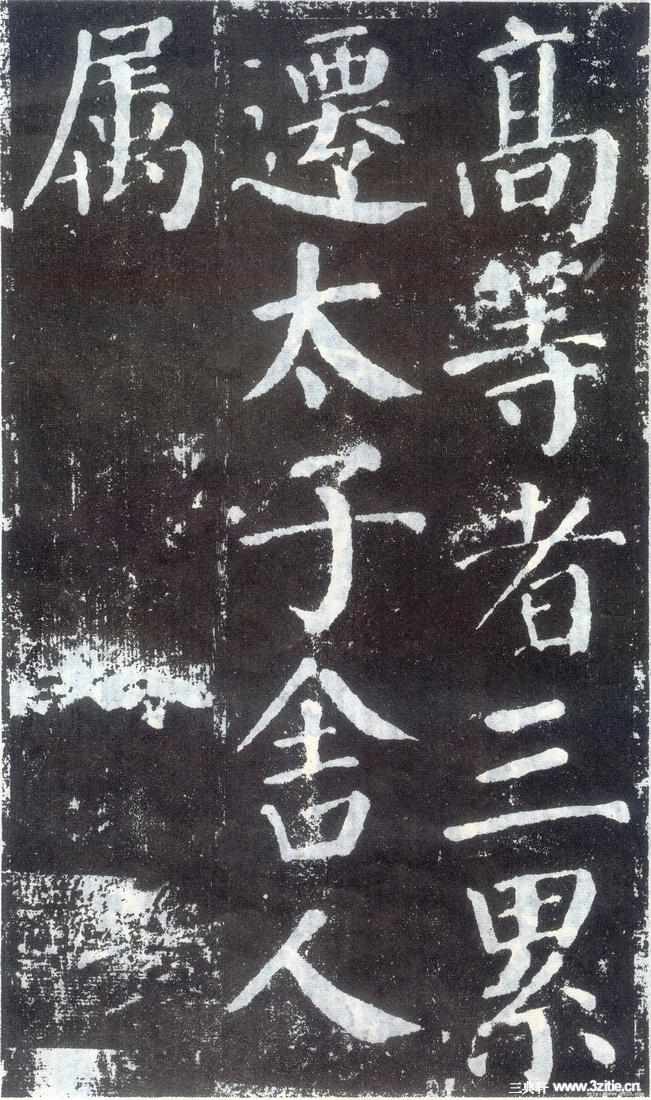 高等者三累
遷太子舎人
属
三典轩 www.3zitie.cn